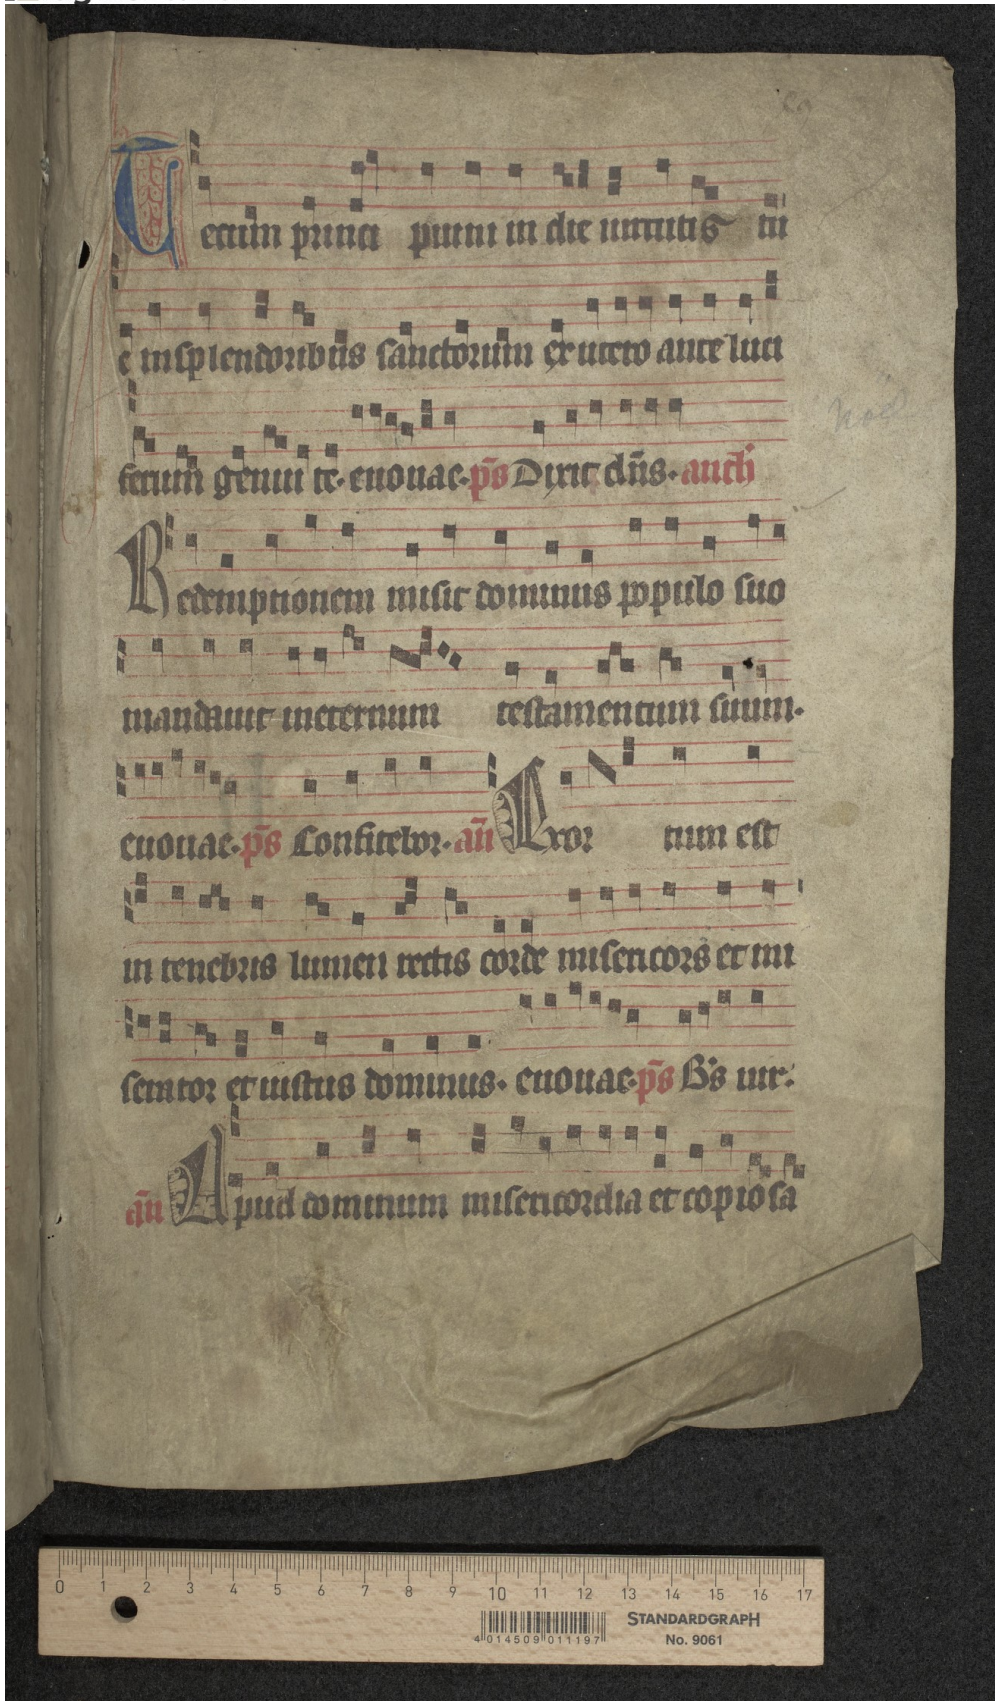 Tecum princi pium in die uirtutis tu
e in splendoribus sanctorum ex utero ante luci
ferum genui te. euouae. p̄s Dixit dn̄s. anth
Redemptionem misit dominus populo suo
mandauit ineternum testamentum suum.
euouae. p̄s Confitebor. an̄ Exor tum est
in tenebris lumen rectis corde misericors et mi
serator et iustus dominus. euouae. p̄s B's uir.
an̄ Apud dominum misericordia et copiosa
0 1 2 3 4 5 6 7 8 9 10 11 12 13 14 15 16 17
STANDARDGRAPH
4 014509 011197
No. 9061